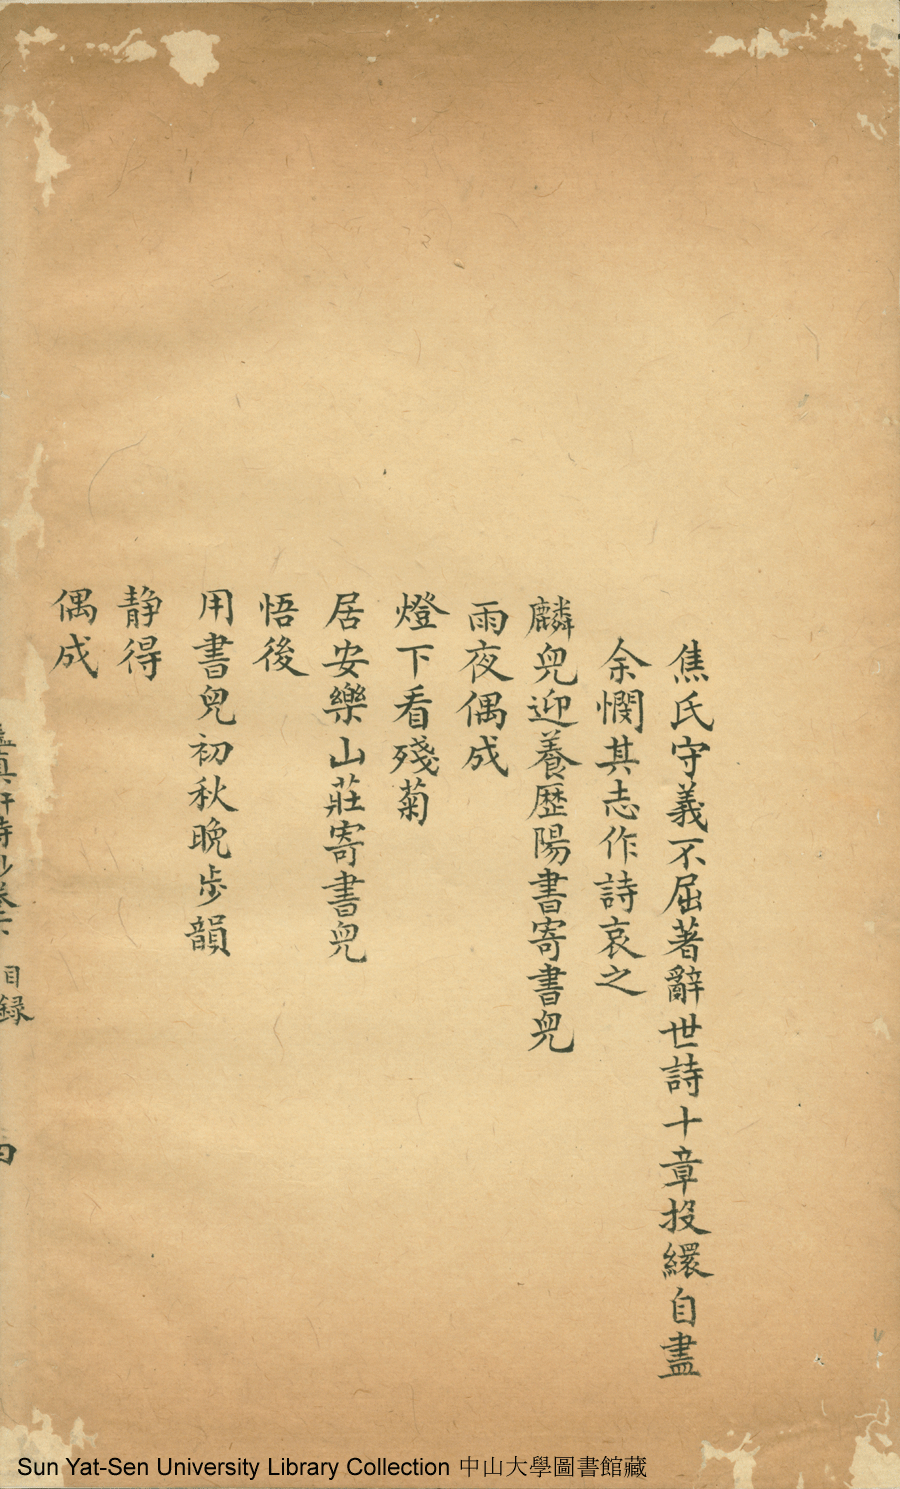 焦氏守義不屈著辭世詩十章投繯自盡
余憫其志作詩哀之
麟兒迎養歷陽書寄書兒
雨夜偶成
燈下看殘菊
居安樂山莊寄書兒
悟後
用書兒初秋晚步韻
静得
偶成
真軒詩鈔卷 目録
Sun Yat-Sen University Library Collection 中山大學圖書館藏